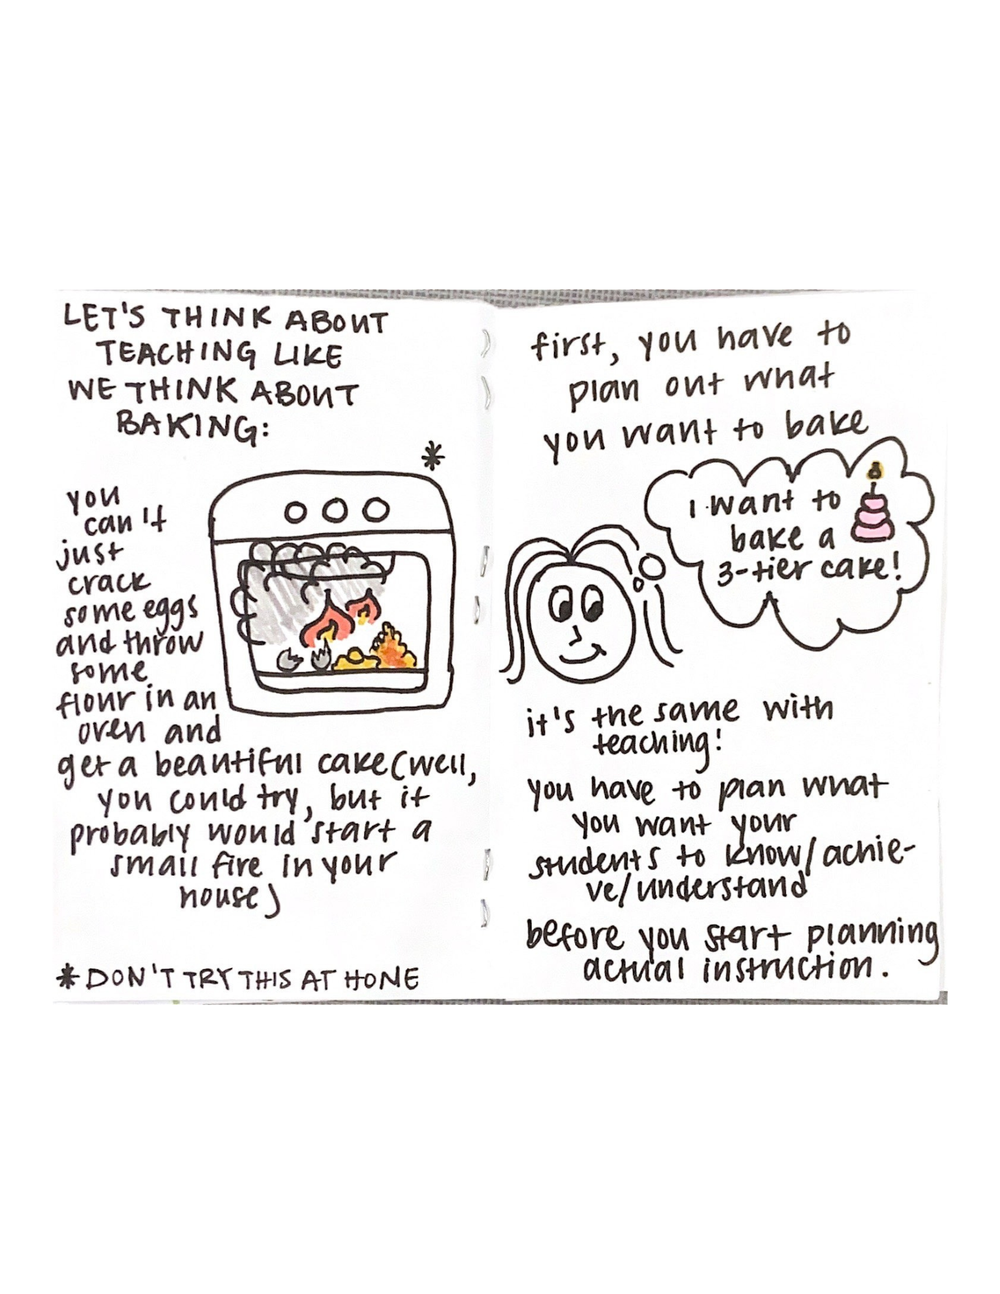 LET'S THINK ABOUT
TEACHING LIKE
WE THINK ABOUT
BAKING:
*
you
can't
just
crack
some eggs
and throw
some
flour in an
oven and
get a beautiful cake (well,
you could try, but it
probably would start a
small fire in your
house)
*DON'T TRY THIS AT HOME
first, you have to
plan out what
you want to bake
I want to
bake a
3-tier cake!
it's the same with
teaching!
you have to plan what
you want your
students to know/achie-
ve/understand
before you start planning
actual instruction.